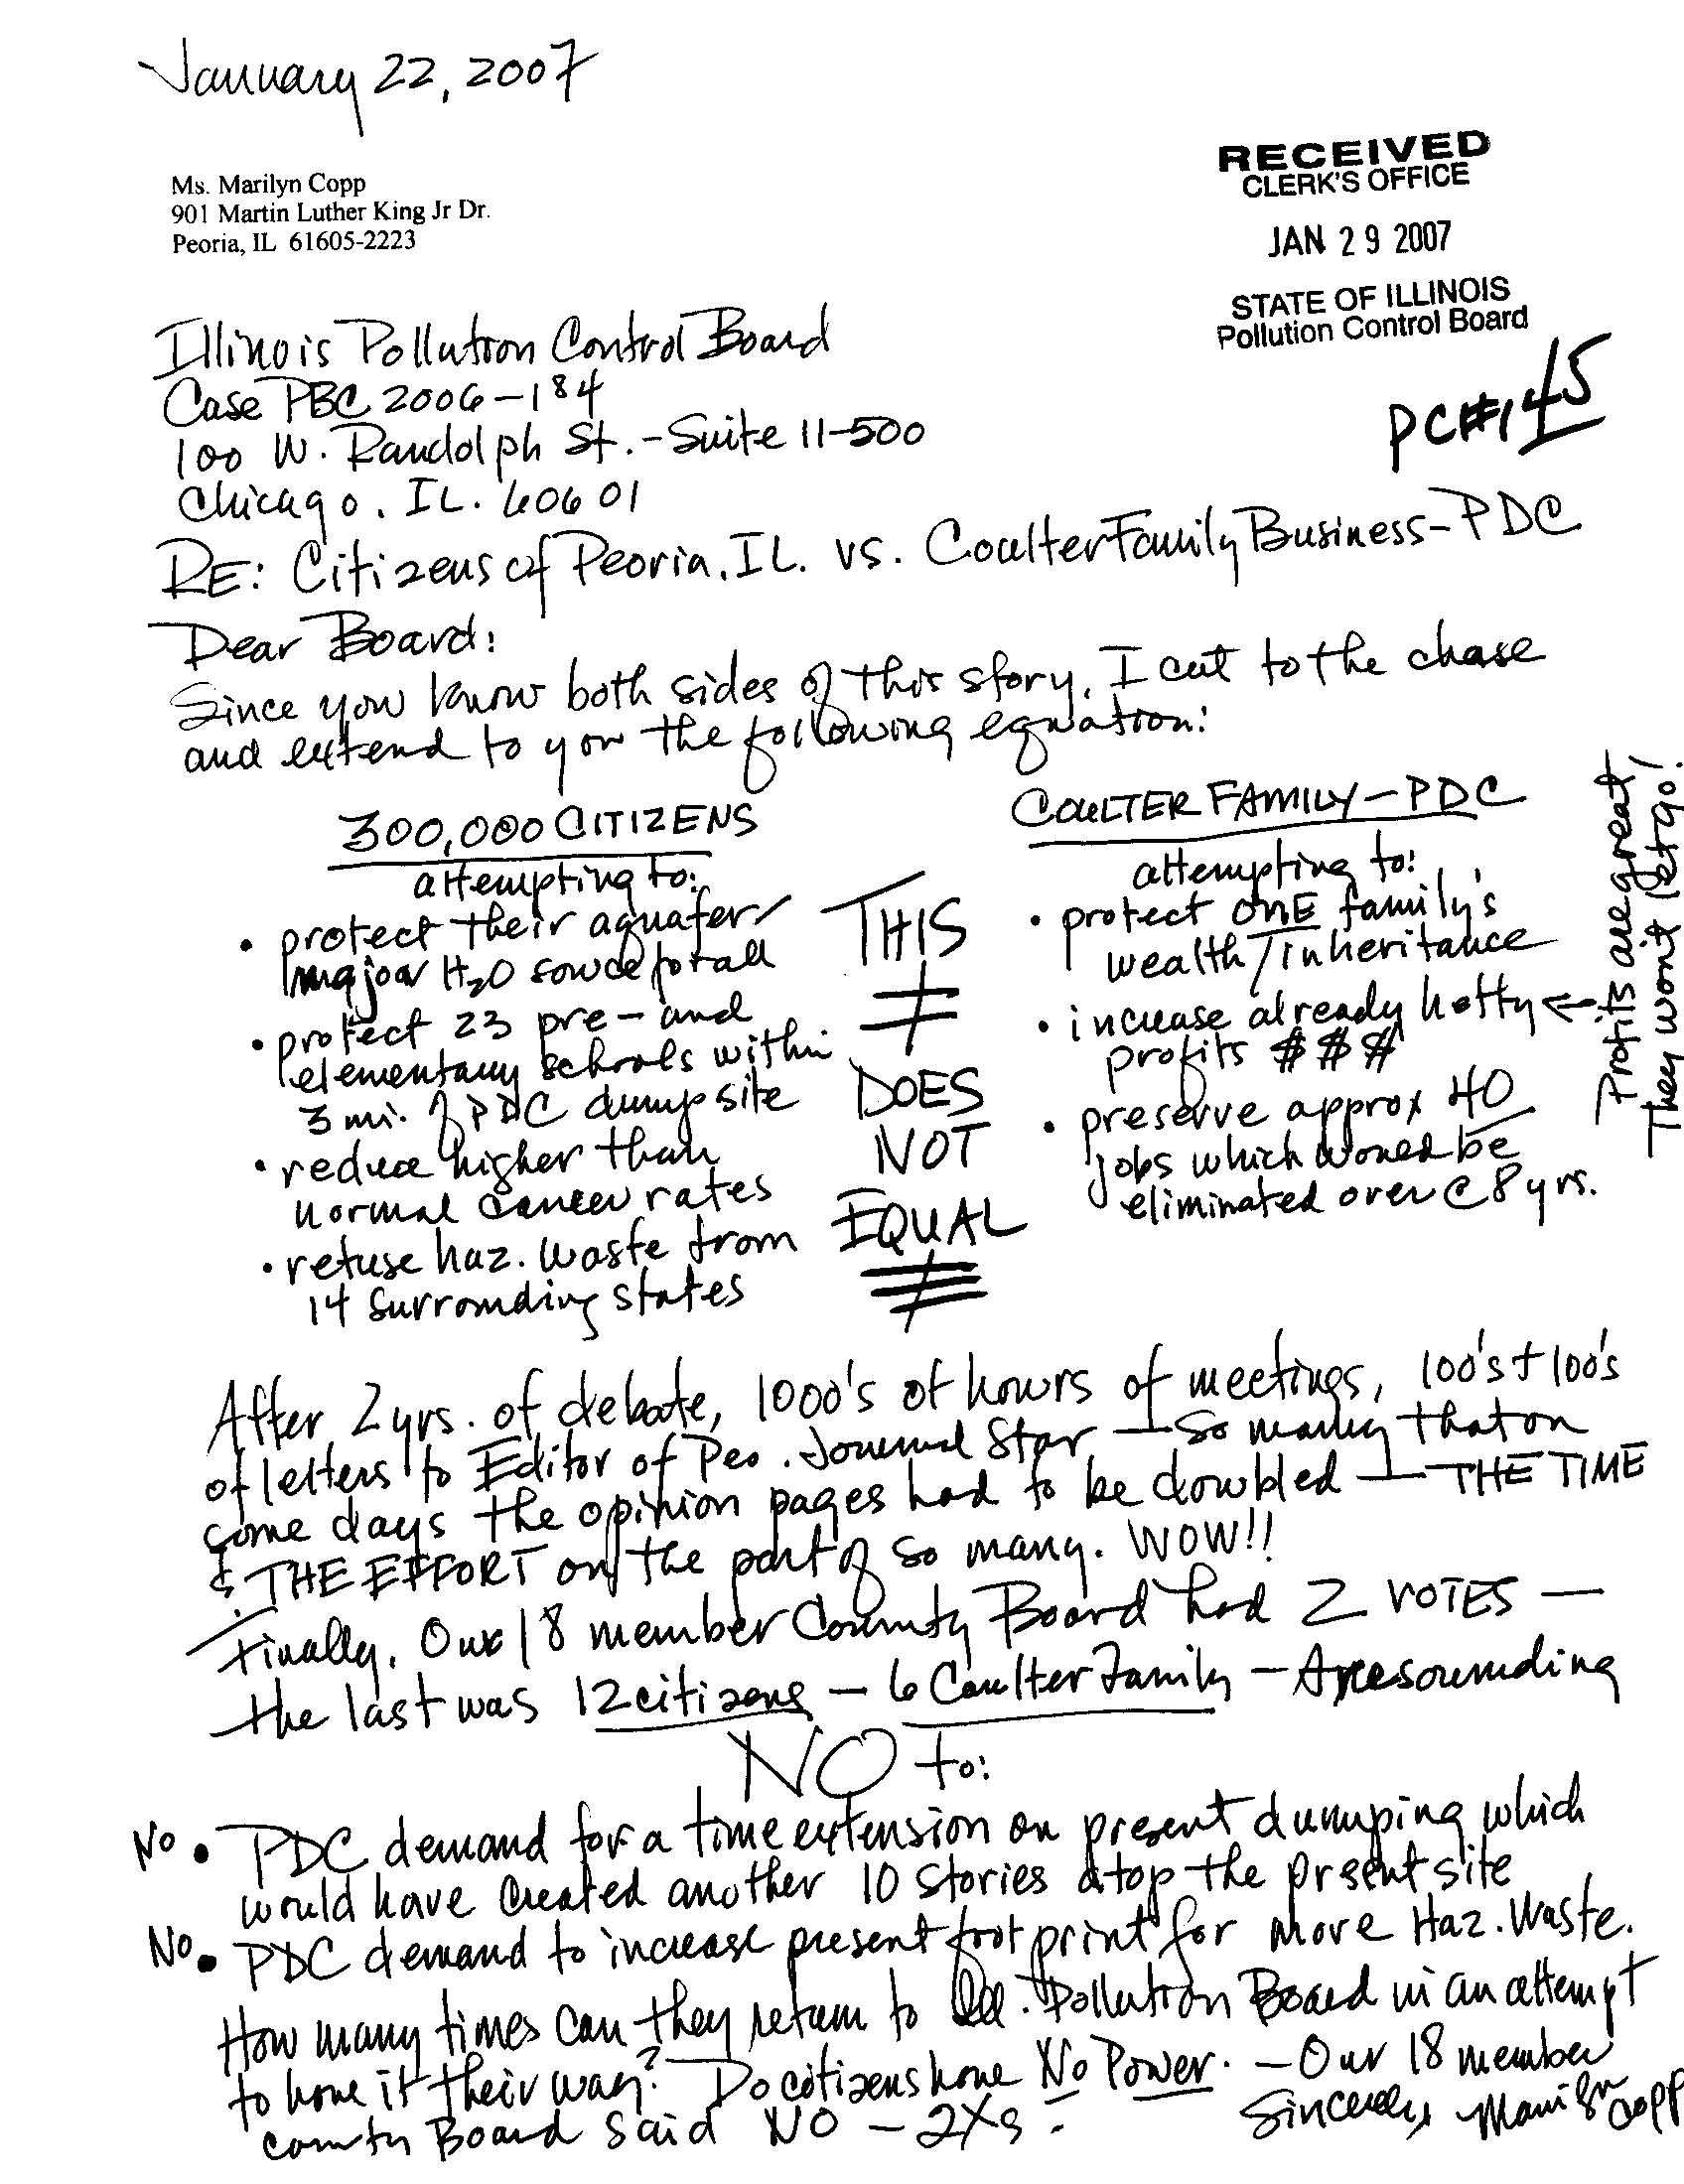 January 22, 2007
Ms. Marilyn Copp
901 Martin Luther King Jr Dr.
Peoria, IL 61605-2223
RECEIVED
CLERK'S OFFICE
JAN 29 2007
STATE OF ILLINOIS
Pollution Control Board
PC#145
Illinois Pollution Control Board
Case PBC 2006-184
100 W. Randolph St. - Suite 11-500
Chicago, IL. 60601
RE: Citizens of Peoria, IL. vs. Coulter Family Business - PDC
Dear Board:
Since you know both sides of this story, I cut to the chase
and extend to you the following equation:
300,000 CITIZENS
attempting to:
• protect their aquafer/
major H2O source for all
• protect 23 pre- and
elementary schools within
3 mi. of PDC dump site
• reduce higher than
normal cancer rates
• refuse haz. waste from
14 surrounding states
THIS
≠
DOES
NOT
EQUAL
≠
COULTER FAMILY - PDC
attempting to:
• protect ONE family's
wealth/inheritance
• increase already hefty ←
profits $ $ $
• preserve approx 40
jobs which would be
eliminated over @ 8 yrs.
Profits are great
They won't let go!
After 2 yrs. of debate, 1000's of hours of meetings, 100's + 100's
of letters to Editor of Peo. Journal Star — so many that on
some days the opinion pages had to be doubled — THE TIME
& THE EFFORT on the part of so many. WOW!!
Finally, Our 18 member County Board had 2 VOTES —
the last was 12 citizens - 6 Coulter Family - A resounding
NO to:
No • PDC demand for a time extension on present dumping which
would have created another 10 stories atop the present site
No • PDC demand to increase present foot print for more Haz. Waste.
How many times can they return to Ill. Pollution Board in an attempt
to have it their way? Do citizens have No Power. - Our 18 member
county Board said NO - 2Xs.
Sincerely, Marilyn Copp